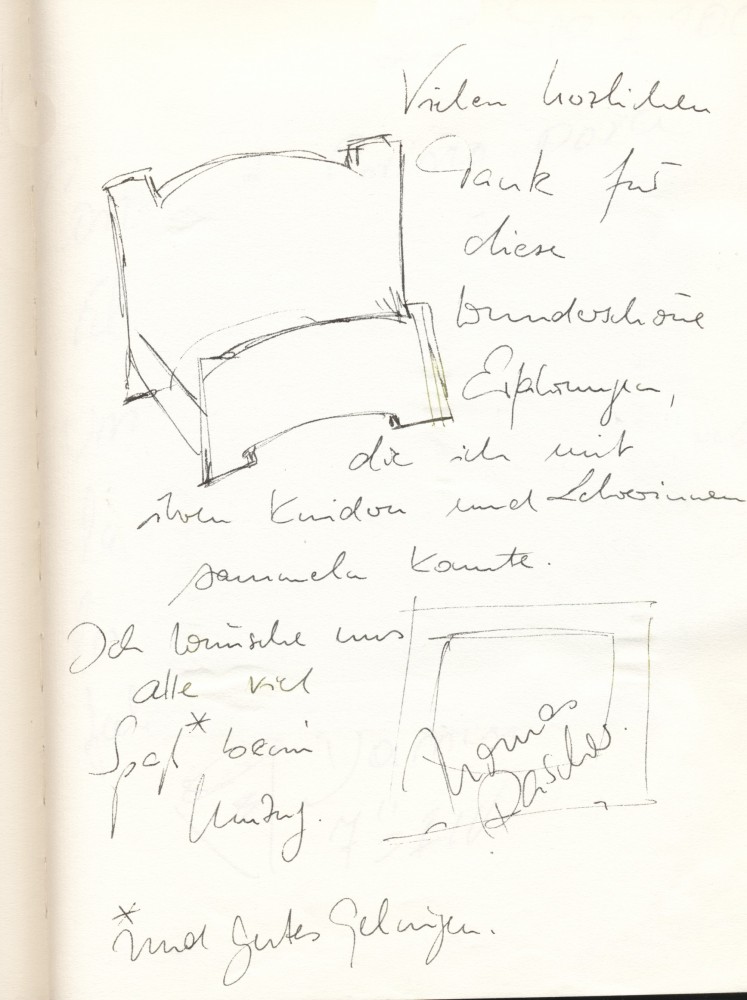 Vielen herzlichen
Dank für
diese
wunderschöne
Erfahrungen,
die ich mit
ihren Kindern und Lehrerinnen
sammeln konnte.
Ich wünsche uns
alle viel
Spaß* beim
Umzug.
Thomas
*und gutes Gelingen.